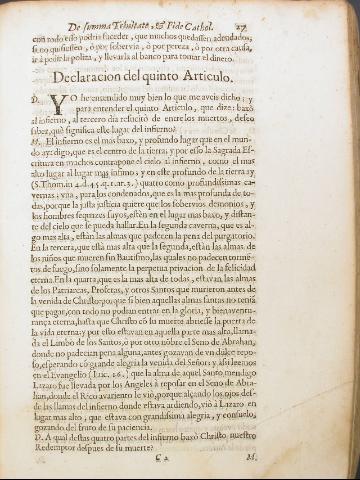 De summa Trinitate, & Fide Cathol. 27
con todo esso podria suceder, que muchos quedassen adeudados,
si no quisiessen, ò por sobervia, ò por pereza, ò por otra causa,
ir à pedir la poliza, y llevarla al banco para tomar el dinero.
Declaracion del quinto Articulo.
D. YO he entendido muy bien lo que me aveis dicho: y
para entender el quinto Articulo, que dize: baxò
al infierno, al tercero dia resucitò de entre los muertos, deseo
saber, què significa este lugar del infierno?
M. El infierno es el mas baxo, y profundo lugar que en el mun-
do ay: digo, que es el centro de la tierra; y por esso la Sagrada Es-
critura en muchos contrapone el cielo al infierno, como el mas
alto lugar al lugar mas infimo; y en este profundo de la tierra ay
(S. Thom. in 4. d. 45. q. 1. ar. 3.) quatro como profundissimas ca-
vernas: vna, para los condenados, que es la mas profunda de to-
das, porque la justa justicia quiere que los sobervios demonios, y
los hombres sequazes suyos, estèn en el lugar mas baxo, y distan-
te del cielo que se pueda hallar. En la segunda caverna, que es al-
go mas alta, estàn las almas que padecen la pena del purgatorio.
En la tercera, que està mas alta que la segunda, estàn las almas de
los niños que mueren sin Bautismo, las quales no padecen tormē-
tos de fuego, sino solamente la perpetua privacion de la felicidad
eterna. En la quarta, que es la mas alta de todas, estavan las almas
de los Patriarcas, Profetas, y otros Santos que murieron antes de
la venida de Christo: porque si bien aquellas almas santas no teniā
que pagar, con todo no podian entrar en la gloria, y bienaventu-
rança eterna, hasta que Christo cō su muerte abriesse la puerta de
la vida eterna; y por esso estavan en aquella parte mas alta, llama-
da el Limbo de los Santos, ò por otro nōbre el Seno de Abrahan,
donde no padecian pena alguna, antes gozavan de vn dulce repo-
so, esperando cō grande alegria la venida del Señor; y assi leemos
en el Evangelio (Luc. 16.) que la alma de aquel Santo mendigo
Lazaro fue llevada por los Angeles à reposar en el Seno de Abra-
han, donde el Rico avariento le viò, porque alçando los ojos des-
de las llamas del infierno donde estava ardiendo, viò à Lazaro en
lugar mas alto, que estava con grandissima alegria, y consuelo,
gozando del fruto de su paciencia.
D. A qual destas quatro partes del infierno baxò Christo nuestro
Redemptor despues de su muerte?
M.